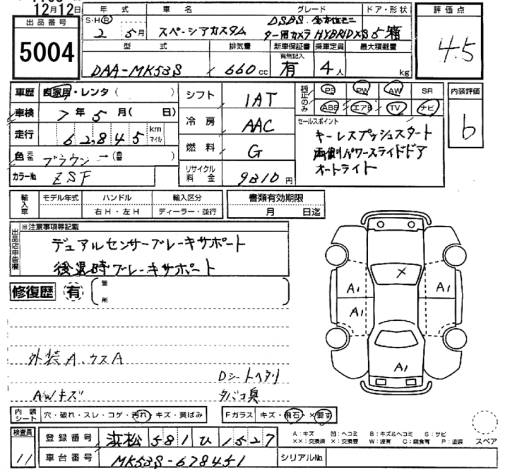 12月12日
出品番号
5004
年式 車名 グレード ドア・形状 評価点
S・H・R 2 5月 スペーシアカスタム HYBRIDXS 5 箱 4.5
型式 排気量 新車保証書 乗車定員 最大積載量
DAA-MK53S 660cc 有 4人 kg
車歴 自家用・レンタ
車検 7年5月( 日)
走行 62845 km マイル
色 ブラウン
カラー番号 ZSF
シフト 1AT
冷房 AAC
燃料 G
リサイクル料金 9810円
純正のみ PS PW AW SR
ABS エアB TV ナビ
セールスポイント
キーレスプッシュスタート
両側パワースライドドア
オートライト
内装評価
b
輸入車 モデル年式 ハンドル 輸入区分 書類有効期限
右H・左H ディーラー・並行 月 日迄
※注意事項等記載
デュアルセンサーブレーキサポート
後退時ブレーキサポート
修復歴 有 箇所
外装A.ウスA
Dシートヘタリ
AWキズ
タバコ臭
X
A1
A1 A1
A1
A1
内装シート 穴・破れ・スレ・コゲ・汚れ・キズ・臭ばみ Fガラス キズ・飛石・×要す
スペア
検査員
11
登録番号 浜松 581 ひ 1527
車台番号 MK53S-678451 シリアルNo.
A:キズ